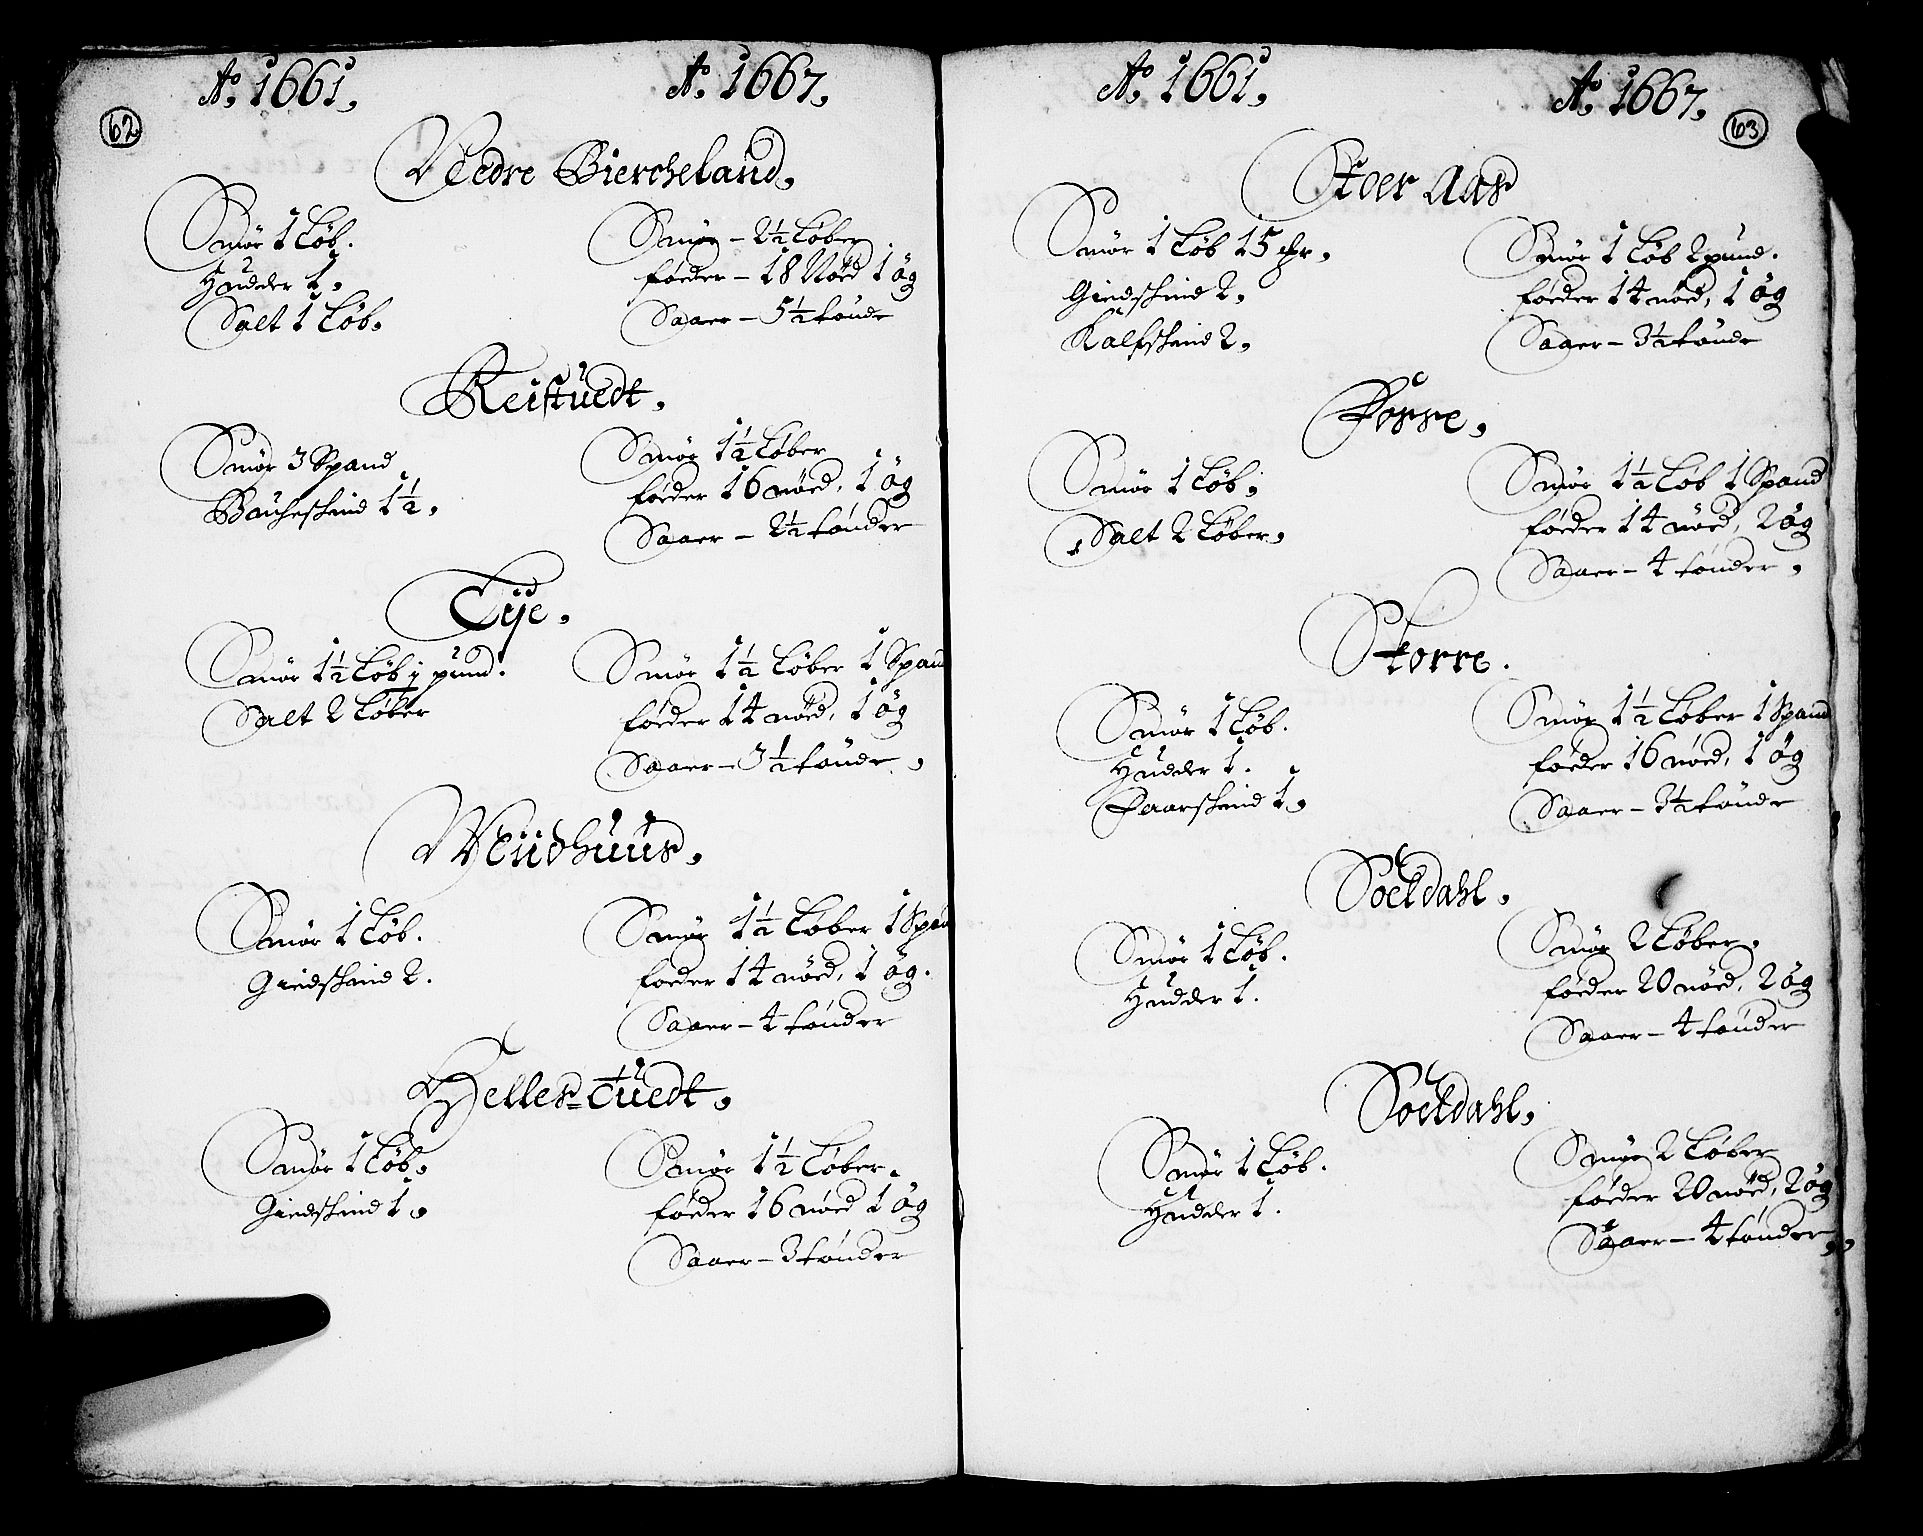 62
Ao. 1661.
Ao. 1667.
Nedre Biercheland.
Smör 1 Löb.
Hudder 1.
Salt 1 Löb.
Smör – 2½ Löber
föeder – 18 Nöed 1 ög
Saaer – 5½ tönde
Reistuedt.
Smör 3 Spand
Bauheskind 1½.
Smör 1½ Löber
föeder 16 nöed, 1 ög
Saaer – 2½ tönder
Eije.
Smör 1½ Löb j pund.
Salt 2 Löber
Smör 1½ Löber 1 Span
föeder 14 nöed, 1 ög
Saaer – 3½ tönde.
Smör 1 Löb.
Giedskind 2.
Smör 1½ Löber 1 Span
foeder 14 nöed, 1 ög.
Saaer – 4 tönder
Helles=tuedt.
Smör 1 Löb.
Giedskind 1.
Smör 1½ Löber.
föeder 16 nöed 1 ög
Saaer – 3 tönder
63
Ao. 1661.
Ao. 1667.
Stoer Aas
Smör 1 Löb 15 
Giedskind 2.
Kalfskind 2.
Smör 1 Löb 2 pund.
föeder 14 nöed, 1 ög
Saaer – 3½ tönde
Smör 1 Löb.
Salt 2 Löber.
Smör 1½ Löb 1 Spand
föeder 14 nöed, 2 ög
Saaer – 4 tönder.
Storre.
Smör 1 Löb.
Hudder 1.
Faarskind 1.
Smör 1½ Löber 1 Spand
föeder 16 nöed, 1 ög
Saaer – 3½ tönde
Soeldahl.
Smör 1 Löb.
Hudder 1.
Smör 2 Löber.
föeder 20 nöed, 2 ög
Saaer – 4 tönder
Soeldahl.
Smör 1 Löb.
Hudder 1.
Smör 2 Löber
föeder 20 nöed, 2 ög
Saaer – 4 tönder.